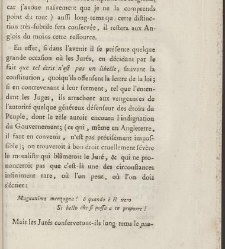 car j'avoue naïvement que je ne la comprends
point du tout) aussi long-tems que cette distinc-
tion très-subtile sera conservée, il restera aux An-
glois du moins cette ressource.
En effet, si dans l'avenir il se présente quelque
grande occasion où les Jurés, en décidant par le
fait que tel écrit n'est pas un libelle, sauvent la
constitution, quoiqu'ils offensent la lettre de la loi;
si en contrevenant à leur serment, tel que l'enten-
dent les Juges, ils arrachent aux vengeances de
l'autorité quelque généreux défenseur des droits du
Peuple, dont la tête auroit encouru l'indignation
du Gouvernement; (ce qui, même en Angleterre,
il faut en convenir, n'est pas précisément impossi-
ble); on trouveroit à bon droit cruellement sévère
le moraliste qui blâmeroit le Juré, de qui ne pro-
nonceroit pas que c'est là une des circonstances
infiniment rare, où l'on peut, où l'on doit
s'écrier:
Magnanima menzogna! o quando è il vero
Si bello che si possa a te preporre!
Mais les Jurés conserveront-ils long tems le pou-